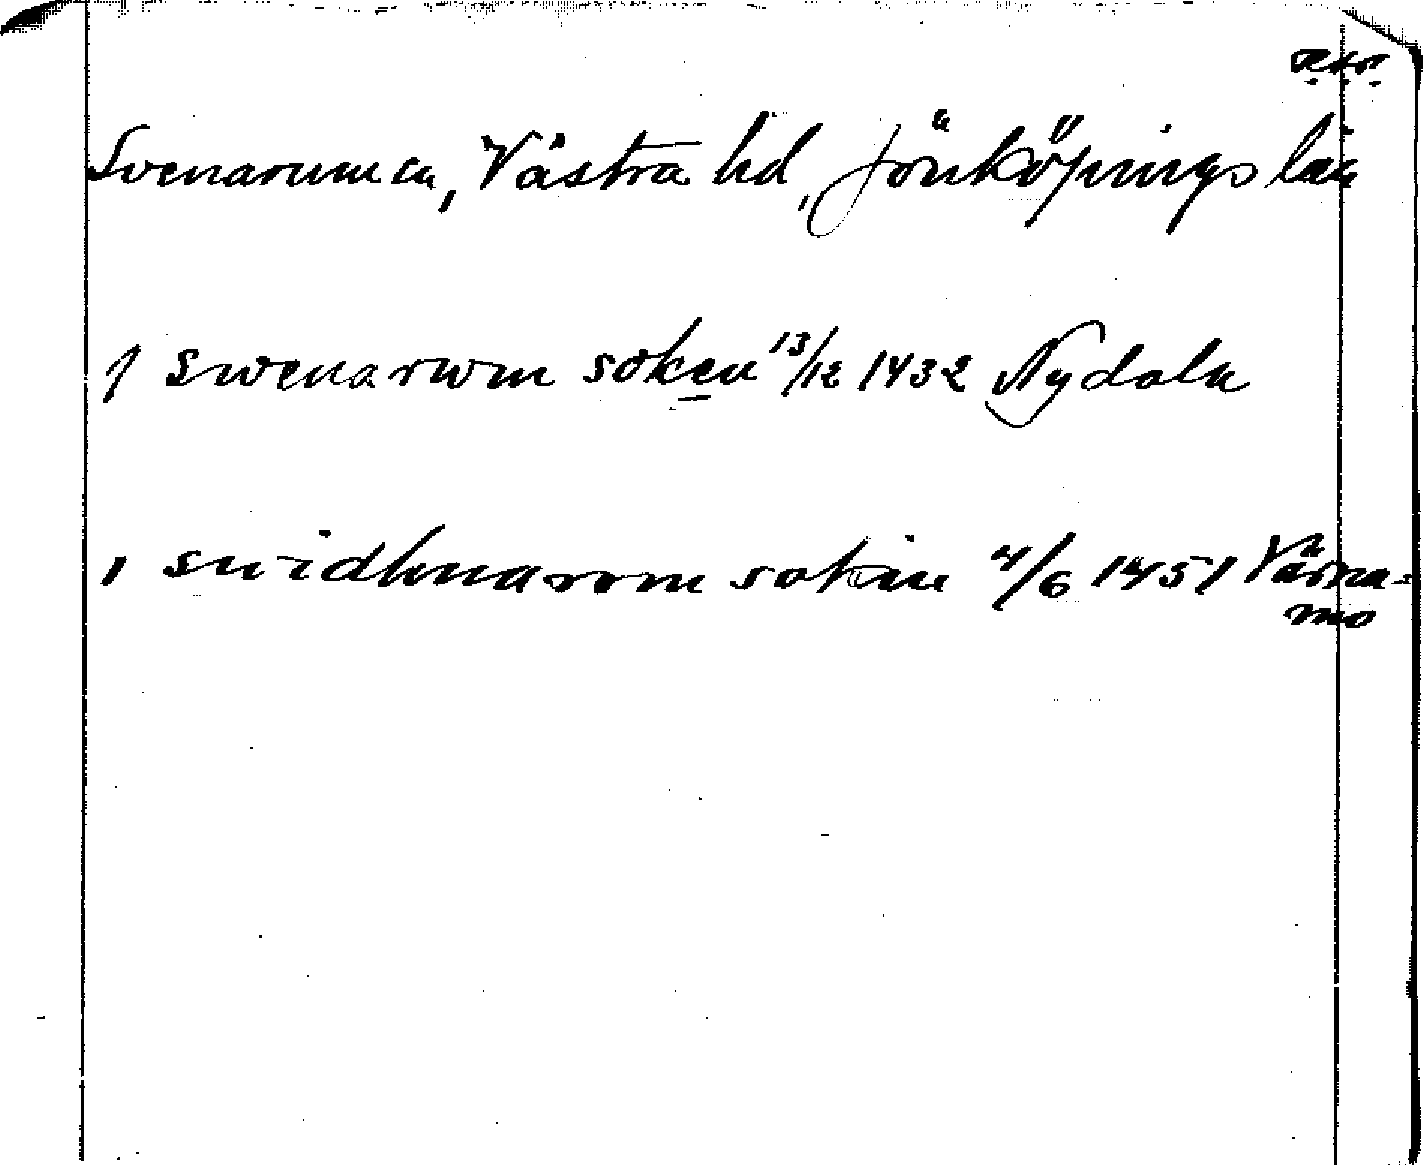 Svenarum sn, Västra hd, Jönköpings län
j swenarwm soken 13/12 1432 Nydala
i swidhnarom sokne 4/6 1451 Värna-
mo